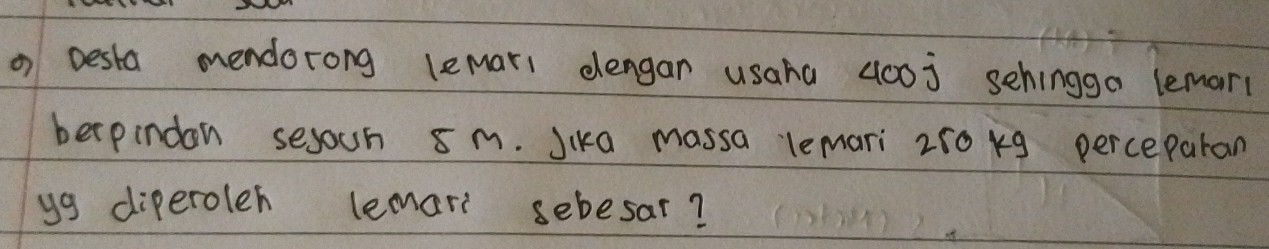 9) Desta mendorong lemari dengan usaha 400 j sehingga lemari
berpindah sejauh 8 m. Jika massa lemari 250 kg percepatan
yg diperoleh lemari sebesar?